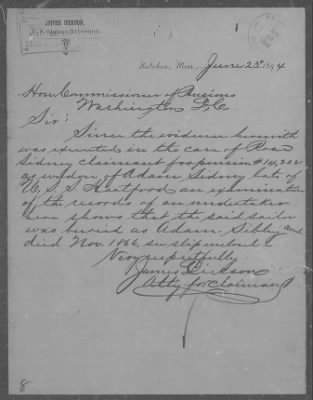 JAMES DICKSON,
U. S. Claims Attorney,
Natchez, Miss., June 23d 1894
Hon. Commissioner of Pensions
Washington D.C.
Sir:
Since the evidence herewith
was executed in the case of
Sidney claimant for pension # 14,202
as widow of Adam Sidney late of
U.S.S. an examination
of the records of an undertaker
here shows that the said sailor
was buried as Adam Sibley and
died Nov. 1866,
Very respectfully
James Dickson
Atty for Claimant
8